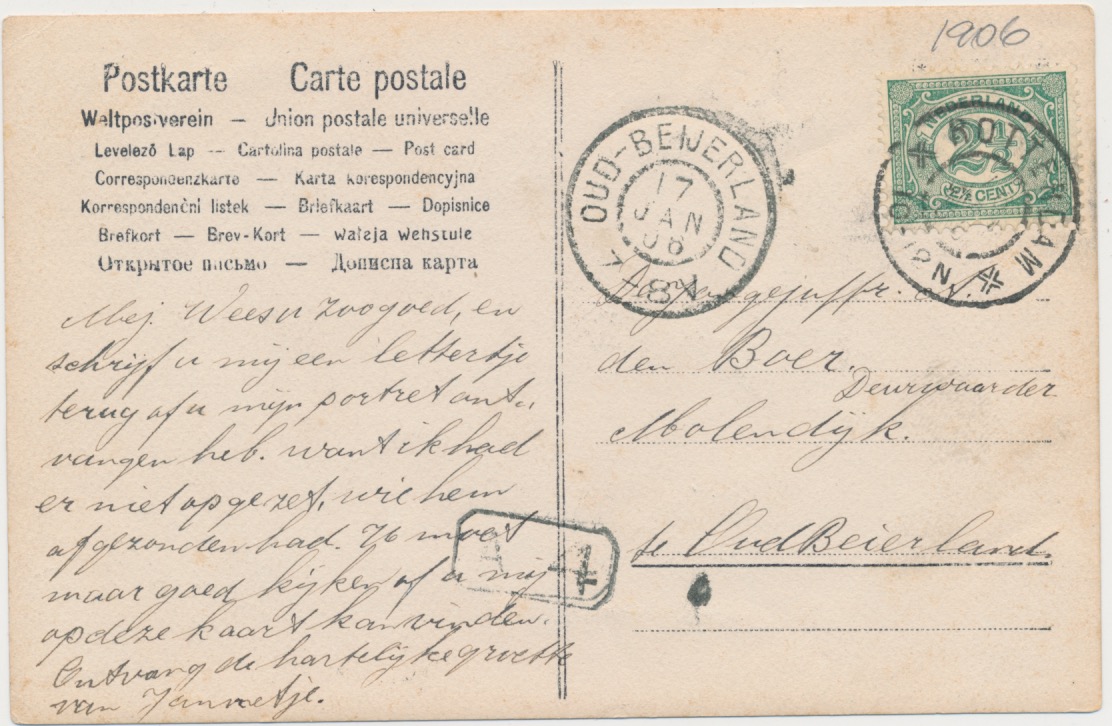 1906
Postkarte Carte postale
Weltpostverein — Union postale universelle
Levelező Lap — Cartolina postale — Post card
Correspondenzkarte — Karta korespondencyjna
Korrespondenční listek — Briefkaart — Dopisnice
Brefkort — Brev-Kort —
Открытое письмо — Дописна карта
OUD-BEIJERLAND
17
JAN
06
7-8V
NEDERLAND
2½
2½ CENT
ROTTERDAM
Mej. Wees u zoo goed, en
schrijf u mij een lettertje
terug of u mijn portret ont-
vangen heb. want ik had
er niet op gezet, wie hem
afgezonden had. U moet
maar goed kijken of u mij
op deze kaart kan vinden.
Ontvang de hartelijke groette
van Jannetje.
den Boer.
Deurwaarder
Molendijk.
te Oud Beierland.
4